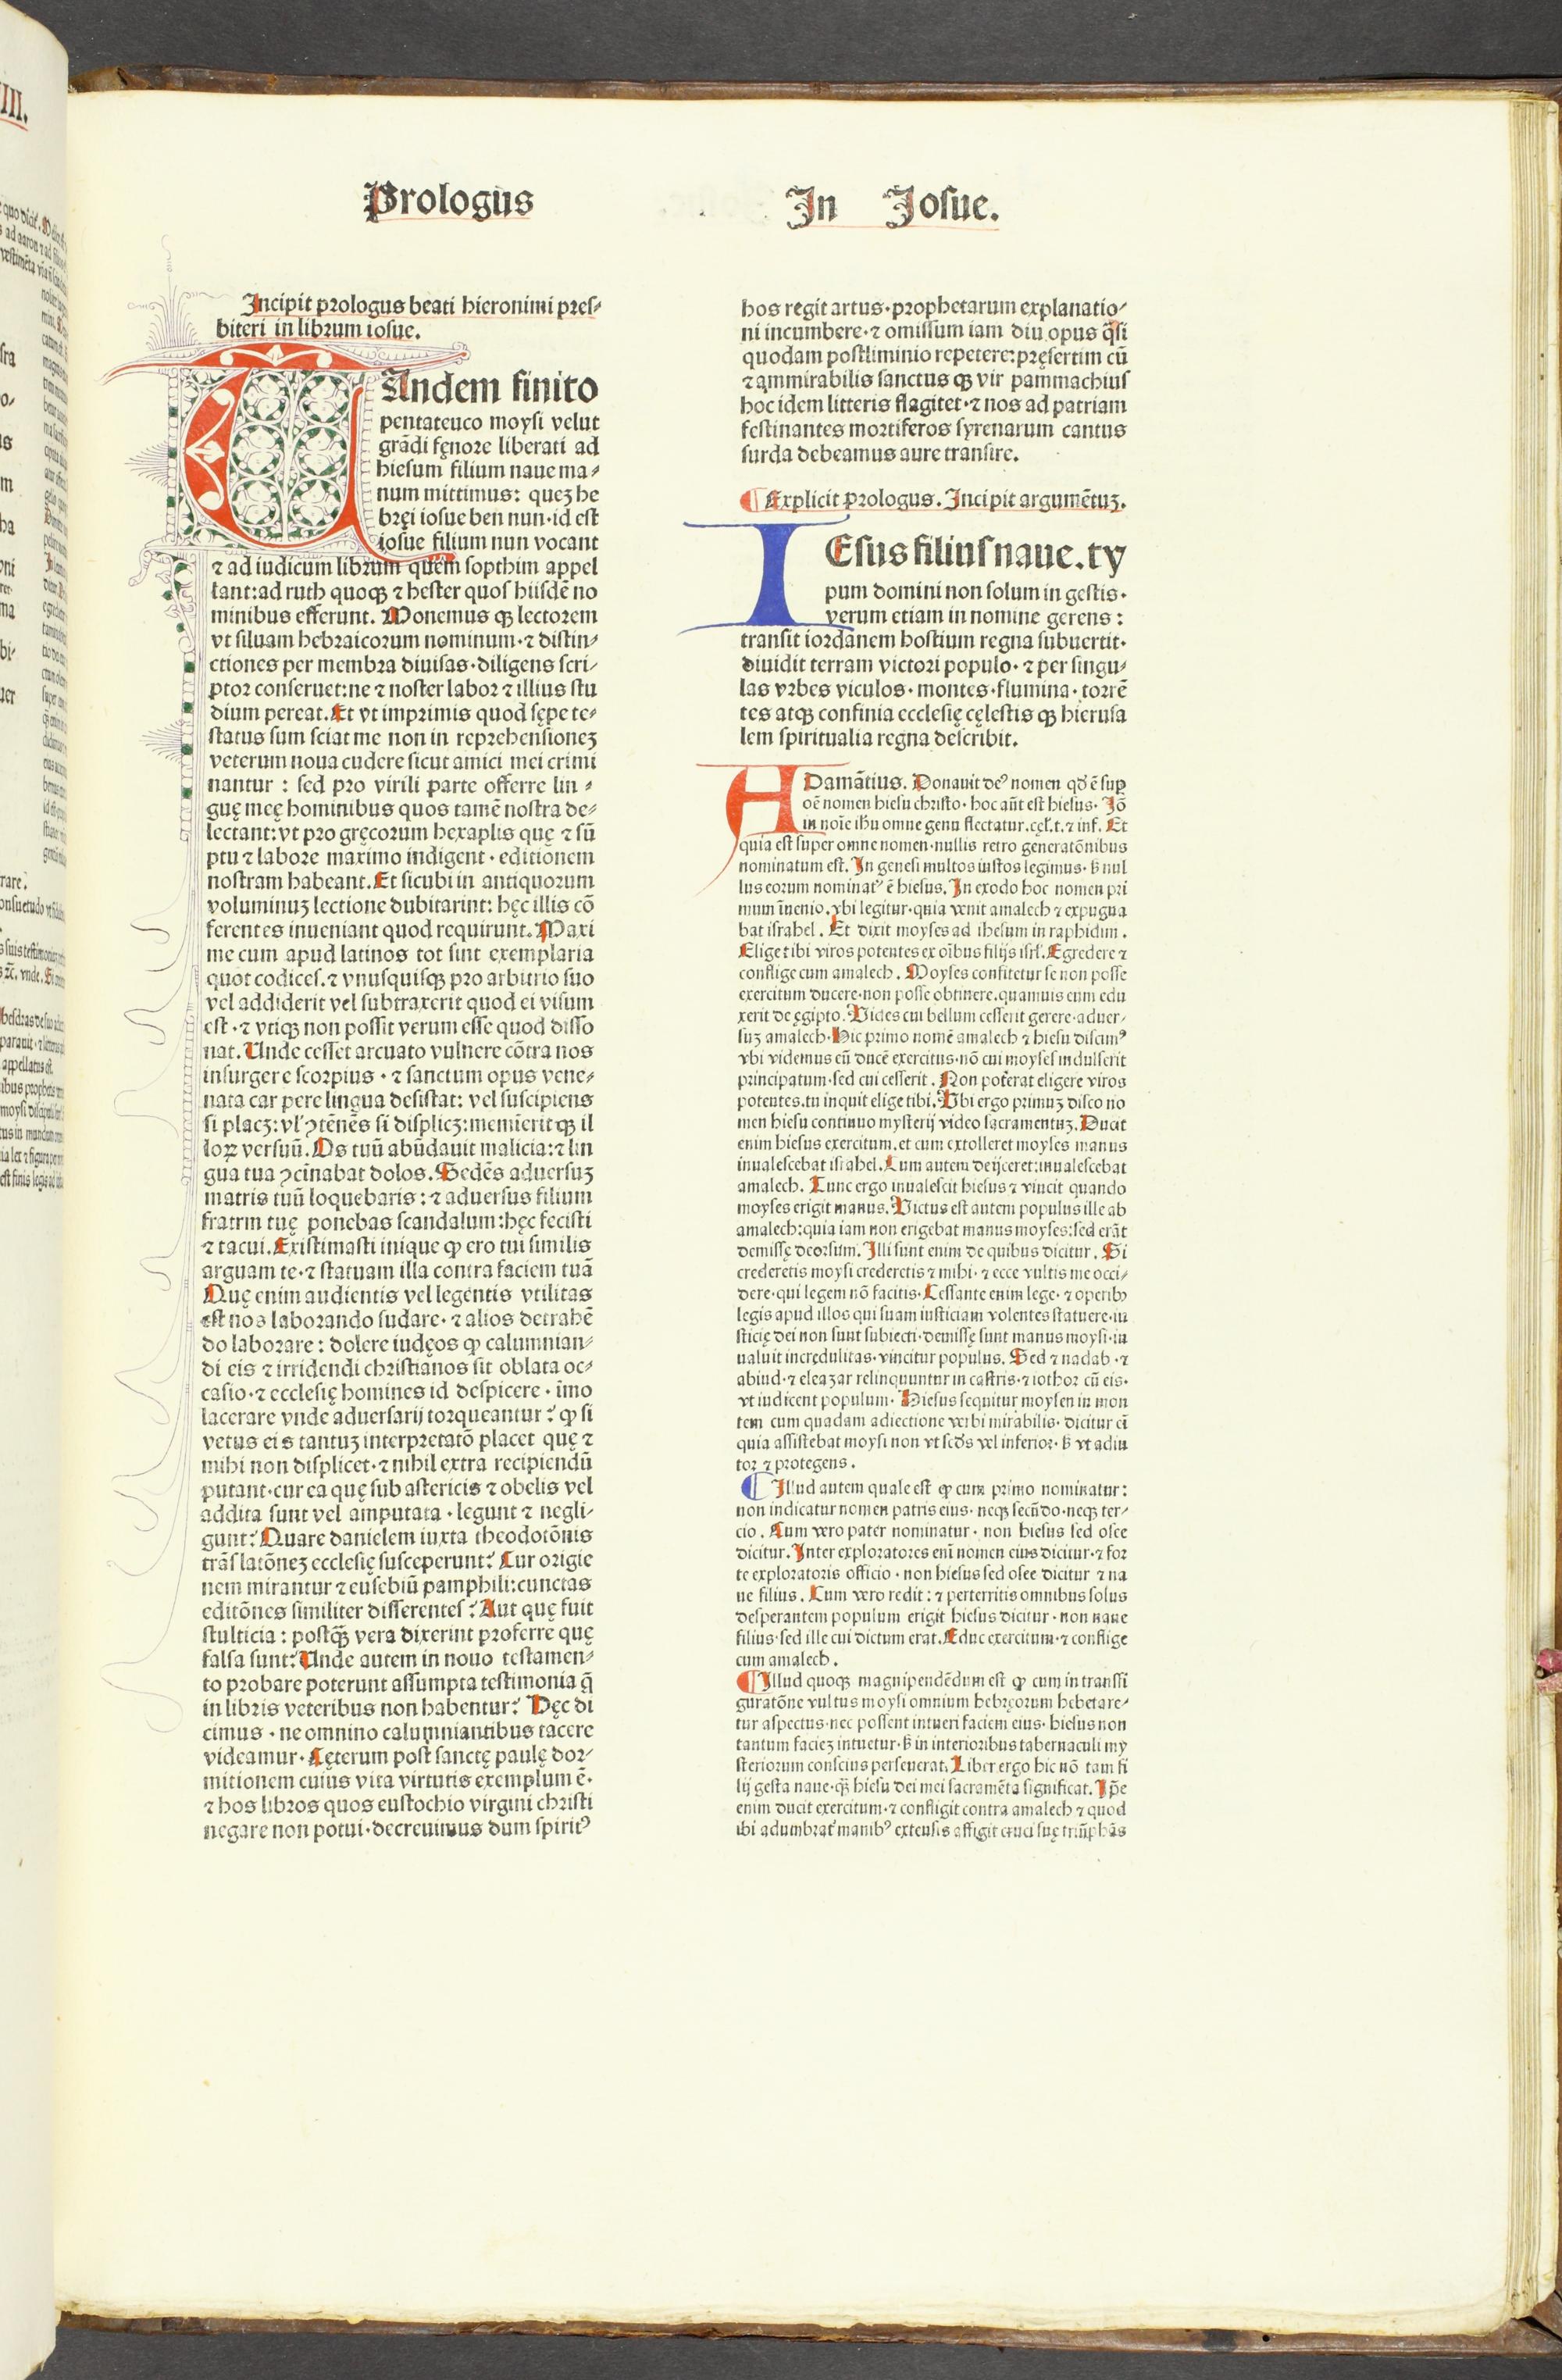 Prologus In Josue.
Incipit prologus beati hieronimi pres⸗
biteri in librum iosue.
TAndem finito
pentateuco moysi velut
grãdi fęnore liberati ad
hiesum filium naue ma⸗
num mittimus: quez he
bręi iosue ben nun·id est
iosue filium nun vocant
⁊ ad iudicum librum quem sopthim appel
lant:ad ruth quoqȝ ⁊ hester quos hiisdẽ no
minibus efferunt. Monemus qȝ lectorem
vt siluam hebraicorum nominum·⁊ distin⸗
ctiones per membra diuisas·diligens scri⸗
ptor conseruet:ne ⁊ noster labor ⁊ illius stu
dium pereat.Et vt imprimis quod sępe te⸗
status sum sciat me non in reprehensionez
veterum noua cudere sicut amici mei crimi
nantur : sed pro virili parte offerre lin ⸗
guę męę hominibus quos tamẽ nostra de⸗
lectant:vt pro gręcorum hexaplis quę ⁊ sũ
ptu ⁊ labore maximo indigent · editionem
nostram habeant.Et sicubi in antiquorum
voluminuz lectione dubitarint: hęc illis cõ
ferentes inueniant quod requirunt.Maxi
me cum apud latinos tot sint exemplaria
quot codices.⁊ vnusquisqȝ pro arbitrio suo
vel addiderit vel subtraxerit quod ei visum
est·⁊ vtiqȝ non possit verum esse quod disso
nat. Unde cesset arcuato vulnere cõtra nos
insurgere scorpius · ⁊ sanctum opus vene⸗
nata car pere lingua desistat: vel suscipiens
si placz: vl' ꝯtẽnẽs si displicz:memĩerit qȝ il
loꝝ versuũ. Os tuũ abũdauit malicia:⁊ lin
gua tua ꝯcĩnabat dolos. Sedẽs aduersuz
matris tuũ loquebaris: ⁊ aduersus filium
fratrm tuę ponebas scandalum:hęc fecisti
⁊ tacui.Existimasti inique ꝙ ero tui similis
arguam te·⁊ statuam illa contra faciem tuã
Quę enim audientis vel legentis vtilitas
est nos laborando sudare·⁊ alios detrahẽ
do laborare: dolere iudęos ꝙ calumnian⸗
di eis ⁊ irridendi christianos sit oblata oc⸗
casio·⁊ ecclesię homines id despicere · ĩmo
lacerare vnde aduersarij torqueantur? ꝙ si
vetus eis tantuz interpretatõ placet quę ⁊
mihi non displicet·⁊ nihil extra recipiendũ
putant·cur ea quę sub astericis ⁊ obelis vel
addita sunt vel amputata · legunt ⁊ negli⸗
gunt? Quare danielem iuxta theodotõnis
trãslatõnez ecclesię susceperunt? Cur origie
nem mirantur ⁊ eusebiũ pamphili:cunctas
editõnes similiter disserentes? Aut quę fuit
stulticia : postqȝ̃ vera dixerint proferre quę
falsa sunt? Unde autem in nouo testamen⸗
to probare poterunt assumpta testimonia q̃
in libris veteribus non habentur? Hęc di
cimus · ne omnino calumniantibus tacere
videamur· Cęterum post sanctę paulę dor⸗
mitionem cuius vita virtutis exemplum ẽ·
⁊ hos libros quos eustochio virgini christi
negare non potui·decreuimus dum spirit⁹
hos regit artus·prophetarum explanatio⸗
ni incumbere·⁊ omissum iam diu opus q̃si
quodam postliminio repetere:pręsertim cũ
⁊ ąmmirabilis sanctus qȝ vir pammachius
hoc idem litteris flagitet·⁊ nos ad patriam
festinantes mortiferos syrenarum cantus
surda debeamus aure transire.
¶ Explicit prologus. Incipit argumẽtuz.
IEsus filius naue.ty
pum domini non solum in gestis·
verum etiam in nomine gerens :
transit iordanem hostium regna subuertit·
diuidit terram victori populo·⁊ per singu⸗
las vrbes viculos·montes·flumina·torrẽ
tes atqȝ confinia ecclesię cęlestis qȝ hierusa
lem spiritualia regna describit.
ADamãtius. Donauit de⁹ nomen qđ ẽ sup
oẽ nomen hiesu christo·hoc aũt est hiesus· Jõ
in noĩe ihu omne genu flectatur.cęl.t.⁊ inf. Et
quia est super omne nomen·nullis retro generatõnibus
nominatum est. In genesi multos iustos legimus· ß nul
lus eorum nominat⁹ ẽ hiesus. In exodo hoc nomen pri
mum ĩuenio.vbi legitur·quia venit amalech ⁊ expugna
bat israhel. Et dixit moyses ad ihesum in raphidim.
Elige tibi viros potentes ex oĩbus filijs isrl'.Egredere ⁊
conflige cum amalech. Moyses confitetur se non posse
exercitum ducere·non posse obtinere.quamuis eum edu
xerit de ęgipto. Vides cui bellum cesserit gerere·aduer⸗
suz amalech·Hic primo nomẽ amalech ⁊ hiesu discim⁹
vbi videmus eũ ducẽ exercitus·nõ cui moyses indulserit
principatum·sed cui cesserit. Non poterat eligere viros
potentes.tu inquit elige tibi. Ubi ergo primuz disco no
men hiesu continuo mysterij video sacramentuz.Ducit
enim hiesus exercitum.et cum extolleret moyses manus
inualescebat israhel.Cum autem deijceret:inualescebat
amalech. Tunc ergo inualescit hiesus ⁊ vincit quando
moyses erigit manus.Victus est autem populus ille ab
amalech:quia iam non erigebat manus moyses:sed erãt
demissę deorsum. Illi sunt enim de quibus dicitur. Si
crederetis moysi crederetis ⁊ mihi·⁊ ecce vultis me occi⸗
dere·qui legem nõ facitis·Cessante enim lege·⁊ operibȝ
legis apud illos qui suam iusticiam volentes statuere·iu
sticię dei non sunt subiecti·demissę sunt manus moysi·in
ualuit incredulitas·vincitur populus. Sed ⁊ nadab·⁊
abiud·⁊ eleazar relinquuntur in castris·⁊ iothor cũ eis·
vt iudicent populum· Hiesus sequitur moysen in mon
tem cum quadam adiectione verbi mirabilis·dicitur eĩ
quia assistebat moysi non vt scđs vel inferior·ß vt adiu
tor ⁊ protegens.
¶ Illud autem quale est ꝙ cum primo nominatur:
non indicatur nomen patris eius·neqȝ secũdo·neqȝ ter⸗
cio. Cum vero pater nominatur· non hiesus sed osee
dicitur. Inter exploratores enĩ nomen eius dicitur·⁊ for
te exploratoris officio·non hiesus sed osee dicitur ⁊ na
ue filius. Cum vero redit: ⁊ perterritis omnibus solus
desperantem populum erigit hiesus dicitur·non naue
filius·sed ille cui dictum erat.Educ exercitum·⁊ conflige
cum amalech.
¶ Illud quoqȝ magnipendẽdum est ꝙ cum in transfi
guratõne vultus moysi omnium hebręorum hebetare⸗
tur aspectus·nec possent intueri faciem eius·hiesus non
tantum faciez intuetur·ß in interioribus tabernaculi my
steriorum conscius perseuerat. Liber ergo hic nõ tam fi
lij gesta naue·qȝ̃ hiesu dei mei sacramẽta significat. Ip̃e
enim ducit exercitum·⁊ confligit contra amalech ⁊ quod
ibi adumbrat' manib⁹ extensis affigit cruci suę triũphãs